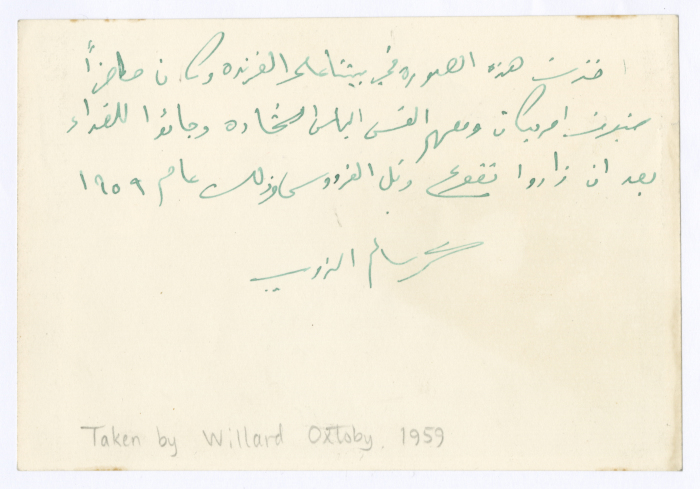 اخذت هذه الصوره في بيتنا على الفرنده وكان حاضراً
ضيوف امريكان ومعهم القس الياس الشحاده وجائوا للغداء
بعد ان زاروا تقوع وتل الفردوس وذلك عام ١٩٥٩
سالم الذويب
Taken by Willard Oxtoby. 1959